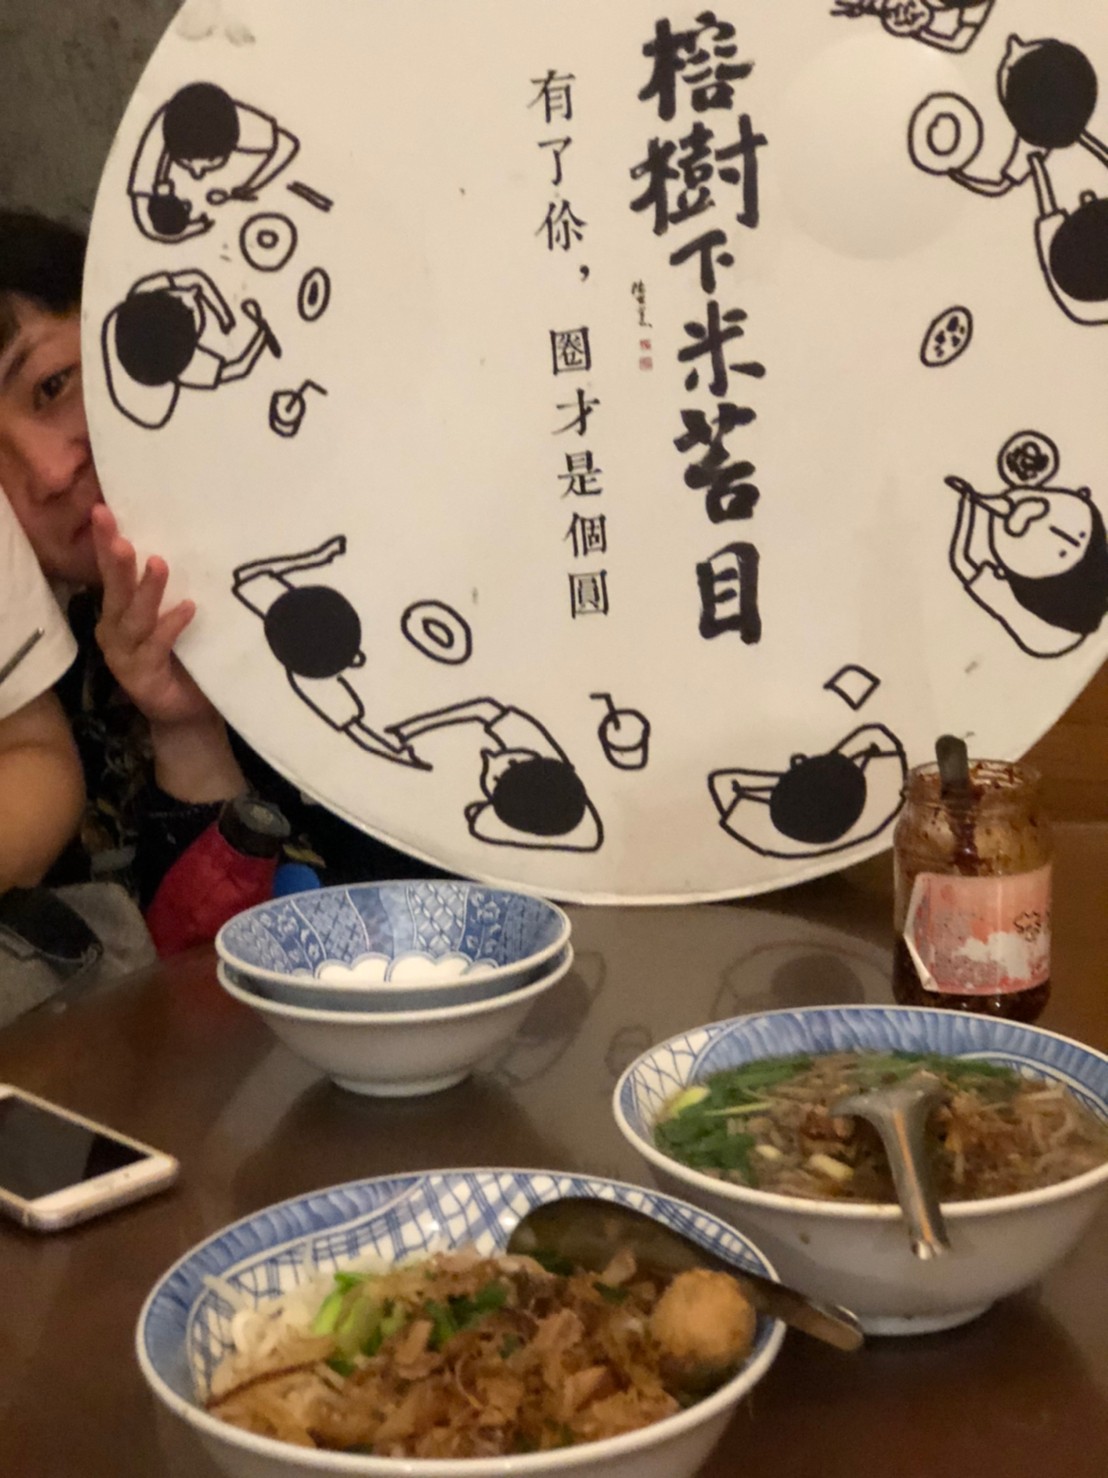 榕樹下米苔目
有了你，圈才是個圓